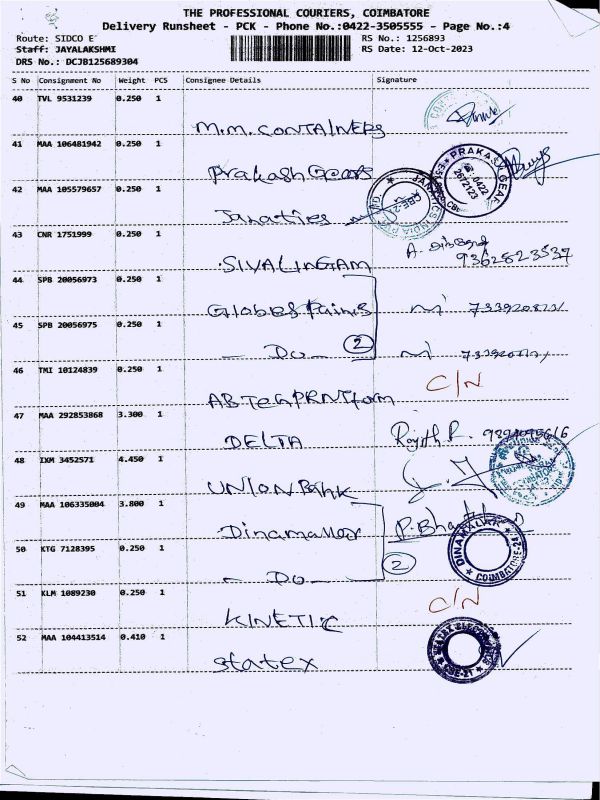 THE PROFESSIONAL COURIERS, COIMBATORE
Delivery Runsheet - PCK - Phone No.:0422-3505555 - Page No.:4
Route: SIDCO E RS No.: 1256893
Staff: JAYALAKSHMI RS Date: 12-Oct-2023
DRS No.: DCJB125689304
S No Consignment No Weight PCS Consignee Details Signature
40 TVL 9531239 0.250 1
M.M. CONTAINERS
41 MAA 106481942 0.250 1
Prakash Gears
PRAKASH GEAR
0422
2672123
42 MAA 105579657 0.250 1
Janatics
JANATICS INDIA
CBE-21
43 CNR 1751999 0.250 1
SIVALINGAM
A.
9362823537
44 SPB 20056973 0.250 1
Globes Paints
45 SPB 20056975 0.250 1
- Do - 2
46 TMI 10124839 0.250 1
C/N
47 MAA 292853868 3.300 1
DELTA
48 IXM 3452571 4.450 1
UNION Bank
49 MAA 106335004 3.800 1
Dinamalar
DINAMALAR
COIMBATORE
50 KTG 7128395 0.250 1
- Do - 2
51 KLM 1089230 0.250 1
KINETIC C/N
52 MAA 104413514 0.410 1
Statex
CBE-21